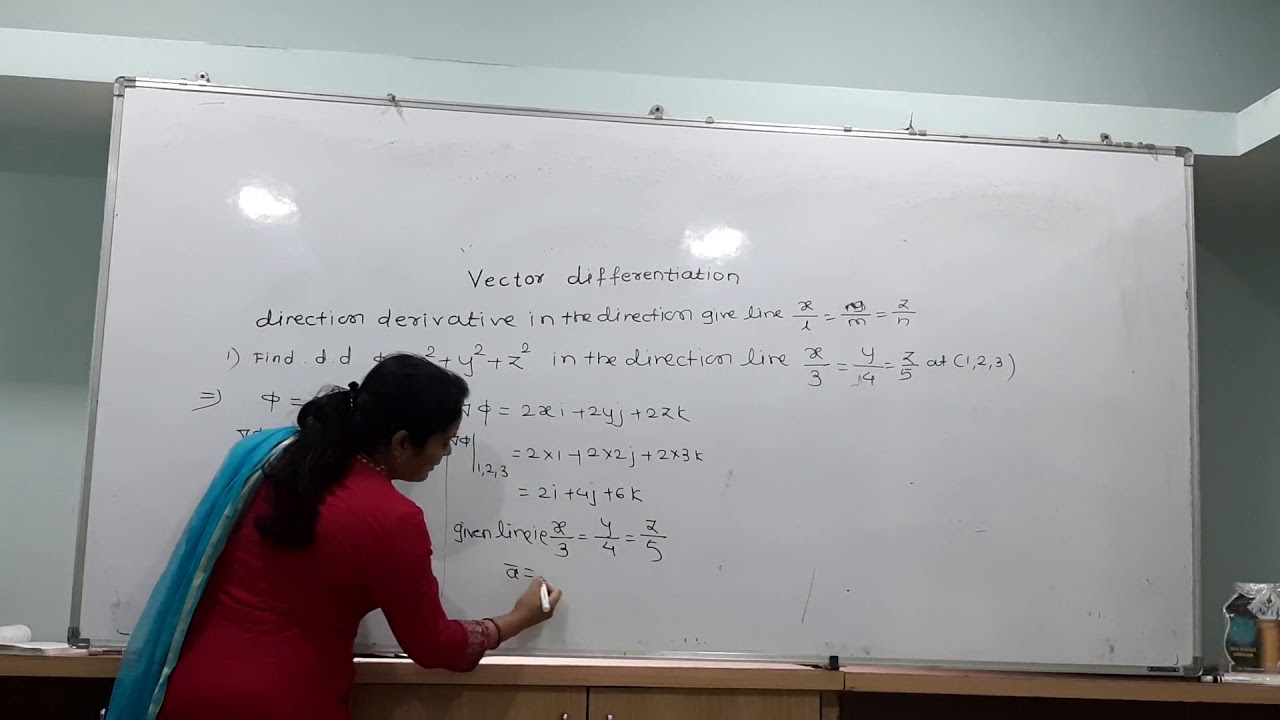 Vector differentiation
direction derivative in the direction give line x/l = /m = z/n
1) Find . d.d ² + y² + z² in the direction line x/3 = y/4 = z/5 at (1,2,3)
⇒ Φ = ∇Φ = 2xi + 2yj + 2zk
∇Φ|1,2,3 = 2×1 + 2×2j + 2×3k
= 2i + 4j + 6k
given line ie x/3 = y/4 = z/5
a̅ =